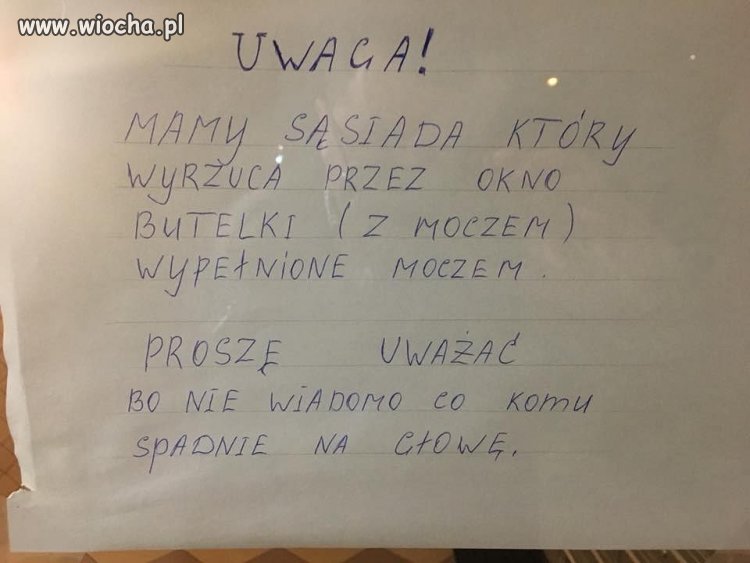 www.wiocha.pl
UWAGA!
MAMY SĄSIADA KTÓRY
WYRZUCA PRZEZ OKNO
BUTELKI (Z MOCZEM)
WYPEŁNIONE MOCZEM.
PROSZĘ UWAŻAĆ
BO NIE WIADOMO CO KOMU
SPADNIE NA GŁOWĘ.